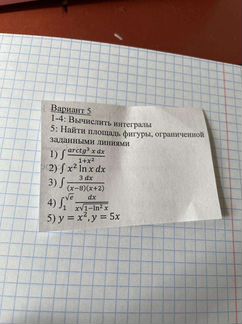 Вариант 5
1-4: Вычислить интегралы
5: Найти площадь фигуры, ограниченной
заданными линиями
1) ∫ arctg³ x dx / 1+x²
2) ∫ x² ln x dx
3) ∫ 3 dx / (x−8)(x+2)
4) ∫₁^√e dx / x√1−ln² x
5) y = x², y = 5x